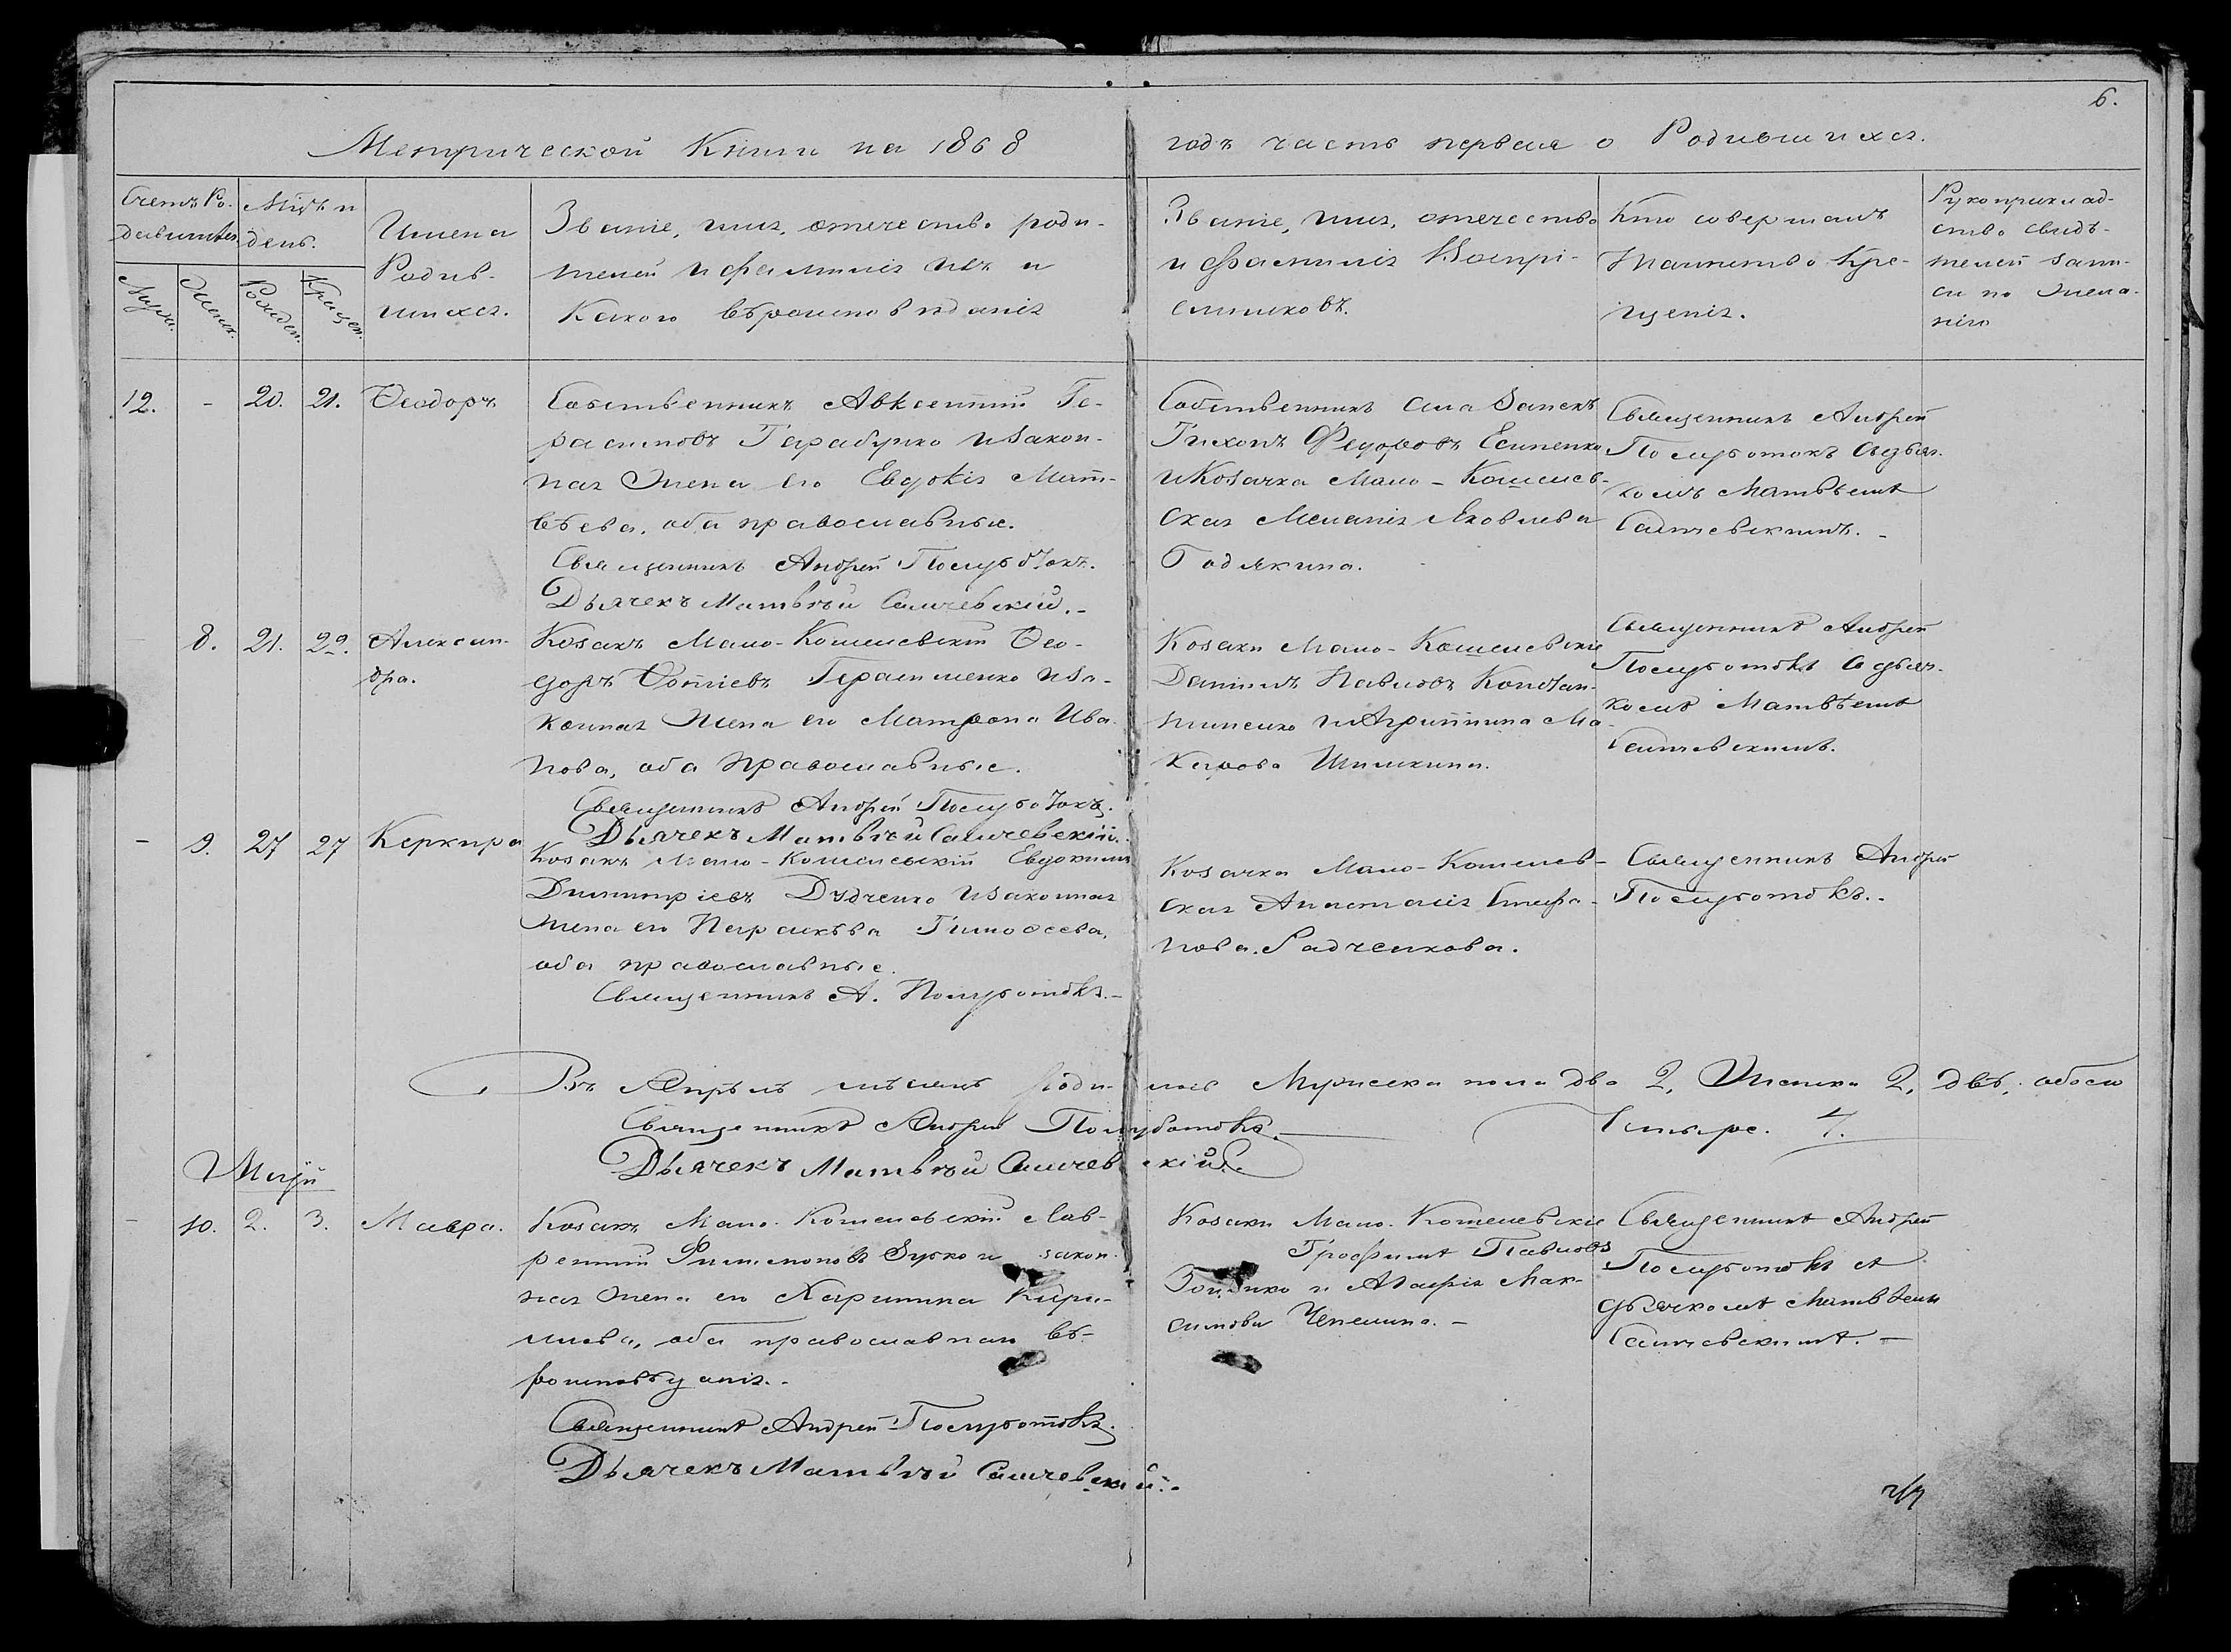 6.
Метрической Книги на 1868
годъ часть первая о Родившихся.
Счетъ Ро-
дившихся
Мѣс. и
день.
Мужеск.
Женск.
Рожден.
Крещен.
Имена
Родив-
шихся.
Званіе, имя, отечество роди-
телей и фамилія ихъ и
Какого вѣроисповѣданія
Званіе, имя, отечество
и фамилія Воспрі-
емниковъ.
Кто совершалъ
Таинство Кре-
щенія.
Рукоприклад-
ство свидѣ-
телей запи-
си по Жела-
нію
12. - 20. 21. Ѳеодоръ
Собственникъ Авксентий Ге-
расимовъ Гарабурко и закон-
ная Жена его Евдокія Мат-
вѣева, оба православные.
Священникъ Андрей Полуботокъ.
Дьячекъ Матвѣй Самчевскій.-
Собственникъ
Тихонъ Федоровъ Есипенко
и Козачка Мало-Кошелев-
ская Меланія Яковлева
Подлякина.
Священникъ Андрей
Полуботокъ съ дьяч-
комъ Матвѣемъ
Самчевскимъ.-
- 8. 21. 22. Алексан-
дра.
Козакъ Мало-Кошелевскій Ѳео-
доръ Фотіевъ Герасименко и за-
конная Жена его Матрона Ива-
нова, оба православные.
Священникъ Андрей Полуботокъ.
Дьячекъ Матвѣй Самчевскій.
Козаки Мало-Кошелевскіе
Даніилъ Павловъ Констан-
тиненко и Агрипина Ма-
карова Шишкина.
Священникъ Андрей
Полуботокъ съ дьяч-
комъ Матвѣемъ
Самчевскимъ.
- 9. 27 27 Керкира
Козакъ Мало-Кошелевскій Евдокимъ
Димитріевъ Дудченко и законная
Жена его Параскѣва Тимоѳеева,
оба православные.
Священникъ А. Полуботокъ.-
Козачка Мало-Кошелев-
ская Анастасія Стефа-
нова Радченкова.
Священникъ Андрей
Полуботокъ.-
Въ Апрѣлѣ мѣсяцѣ Роди-лось Мужеска пола два 2, Женска 2, двѣ, обоего
Священникъ Андрей Полуботокъ.
Четыре. 4.
Дьячекъ Матвѣй Самчевскій.
Маій
- 10. 2. 3. Мавра.
Козакъ Мало-Кошелевскій Лав-
рентий Филимоновъ Зубко и закон-
ная Жена его Харитина Кири-
лова, оба православнаго вѣ-
роисповѣданія.-
Священникъ Андрей Полуботокъ.
Дьячекъ Матвѣй Самчевскій.-
Козаки Мало-Кошелевскіе
Трофимъ Павловъ
и Агафія Мак-
симова Чепелина.-
Священникъ Андрей
Полуботокъ съ
дьячкомъ Матвѣемъ
Самчевскимъ.-